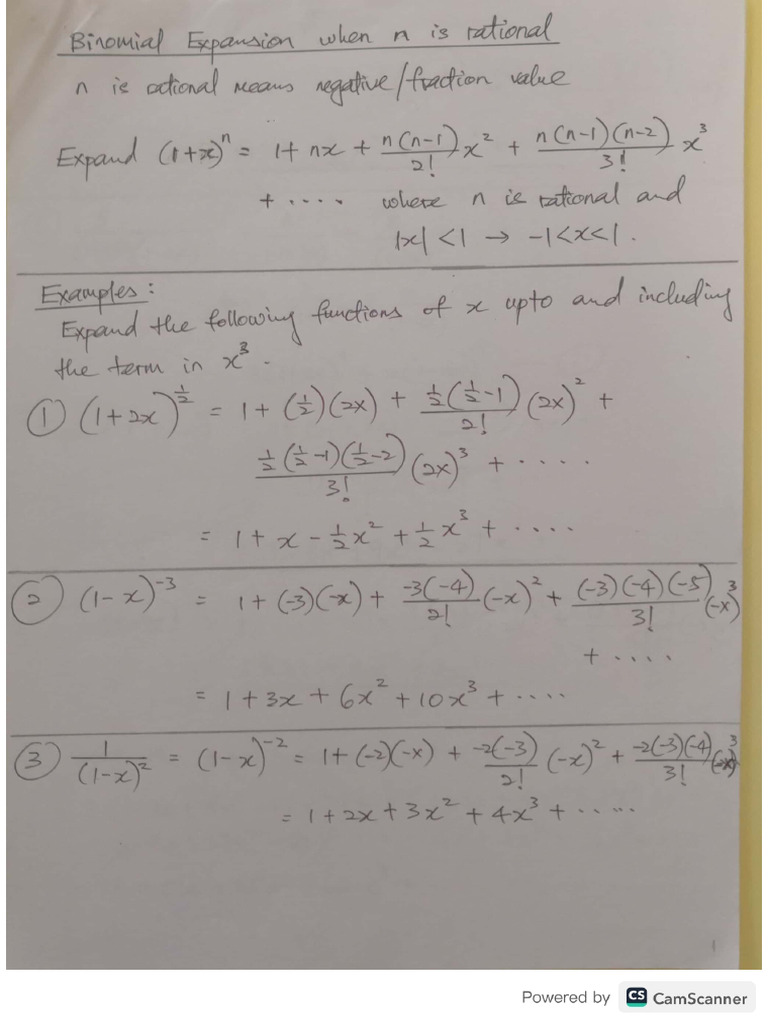 Binomial Expansion when n is rational
n is rational means negative/fraction value
Expand (1+x)ⁿ = 1 + nx + n(n-1)/2! x² + n(n-1)(n-2)/3! x³
+ .... where n is rational and
|x| < 1 → -1<x<1.
Examples:
Expand the following functions of x upto and including
the term in x³.
① (1+2x)^½ = 1 + (½)(2x) + ½(½-1)/2! (2x)² +
½(½-1)(½-2)/3! (2x)³ + ....
= 1 + x - ½x² + ½x³ + ....
② (1-x)⁻³ = 1 + (-3)(-x) + -3(-4)/2! (-x)² + (-3)(-4)(-5)/3! (-x)³
+ ....
= 1 + 3x + 6x² + 10x³ + ....
③ 1/(1-x)² = (1-x)⁻² = 1 + (-2)(-x) + -2(-3)/2! (-x)² + -2(-3)(-4)/3! (-x)³
= 1 + 2x + 3x² + 4x³ + .....
1
Powered by CS CamScanner